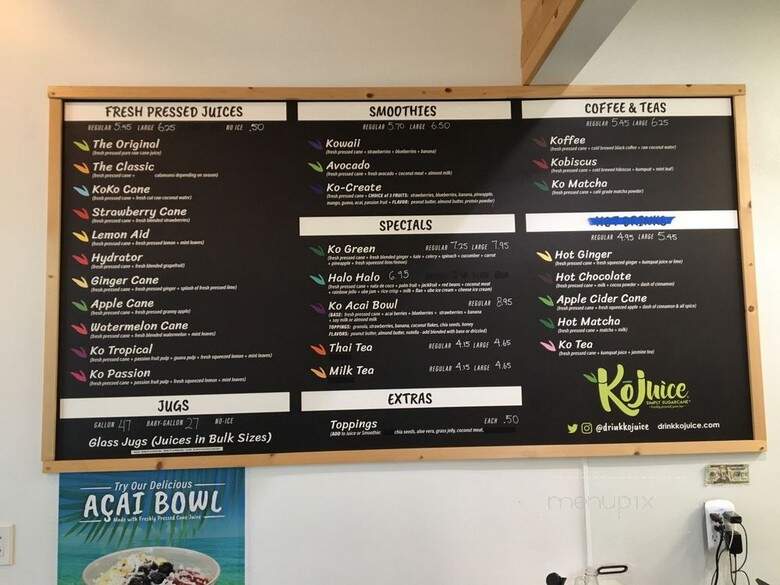 FRESH PRESSED JUICES
REGULAR 5.45 LARGE 6.25 NO ICE .50
The Original
(fresh pressed pure raw cane juice)
The Classic
(fresh pressed cane + calamansi depending on season)
KoKo Cane
(fresh pressed cane + fresh cut raw coconut water)
Strawberry Cane
(fresh pressed cane + fresh blended strawberries)
Lemon Aid
(fresh pressed cane + fresh pressed lemon + mint leaves)
Hydrator
(fresh pressed cane + fresh blended grapefruit)
Ginger Cane
(fresh pressed cane + fresh pressed ginger + splash of fresh pressed lime)
Apple Cane
(fresh pressed cane + fresh pressed granny apple)
Watermelon Cane
(fresh pressed cane + fresh blended watermelon + mint leaves)
Ko Tropical
(fresh pressed cane + passion fruit pulp + guava pulp + fresh squeezed lemon + mint leaves)
Ko Passion
(fresh pressed cane + passion fruit pulp + fresh squeezed lemon + mint leaves)
JUGS
GALLON 47 BABY-GALLON 27 NO-ICE
Glass Jugs (Juices in Bulk Sizes)
SMOOTHIES
REGULAR 5.70 LARGE 6.50
Kowaii
(fresh pressed cane + strawberries + blueberries + banana)
Avocado
(fresh pressed cane + fresh avocado + coconut meat + almond milk)
Ko-Create
(fresh pressed cane + CHOICE of 3 FRUITS: strawberries, blueberries, banana, pineapple,
mango, guava, acai, passion fruit + FLAVOR: peanut butter, almond butter, protein powder)
SPECIALS
Ko Green REGULAR 7.25 LARGE 7.95
(fresh pressed cane + fresh blended ginger + kale + celery + spinach + cucumber + carrot
+ pineapple + fresh squeezed lime/lemon)
Halo Halo 6.95
(fresh pressed cane + nata de coco + palm fruit + jackfruit + red beans + coconut meat
+ rainbow jello + ube jam + rice crisp + milk + flan + ube ice cream + cheese ice cream)
Ko Acai Bowl REGULAR 8.95
(BASE: fresh pressed cane + acai berries + blueberries + strawberries + banana
+ soy milk or almond milk
TOPPINGS: granola, strawberries, banana, coconut flakes, chia seeds, honey
FLAVORS: peanut butter, almond butter, nutella - add blended with base or drizzled)
Thai Tea REGULAR 4.15 LARGE 4.65
Milk Tea REGULAR 4.35 LARGE 4.65
EXTRAS
Toppings EACH .50
(ADD to Juice or Smoothie: chia seeds, aloe vera, grass jelly, coconut meat,
COFFEE & TEAS
REGULAR 5.45 LARGE 6.25
Koffee
(fresh pressed cane + cold brewed black coffee + raw coconut water)
Kobiscus
(fresh pressed cane + cold brewed hibiscus + kumquat + mint leaf)
Ko Matcha
(fresh pressed cane + café grade matcha powder)
HOT DRINKS
REGULAR 4.95 LARGE 5.45
Hot Ginger
(fresh pressed cane + fresh squeezed ginger + kumquat juice or lime)
Hot Chocolate
(fresh pressed cane + milk + cocoa powder + dash of cinnamon)
Apple Cider Cane
(fresh pressed cane + fresh squeezed apple + dash of cinnamon & all spice)
Hot Matcha
(fresh pressed cane + matcha + milk)
Ko Tea
(fresh pressed cane + kumquat juice + jasmine tea)
KōJuice
SIMPLY SUGARCANE
@drinkkojuice drinkkojuice.com
Try Our Delicious
AÇAI BOWL
Made with Freshly Pressed Cane Juice
menupix